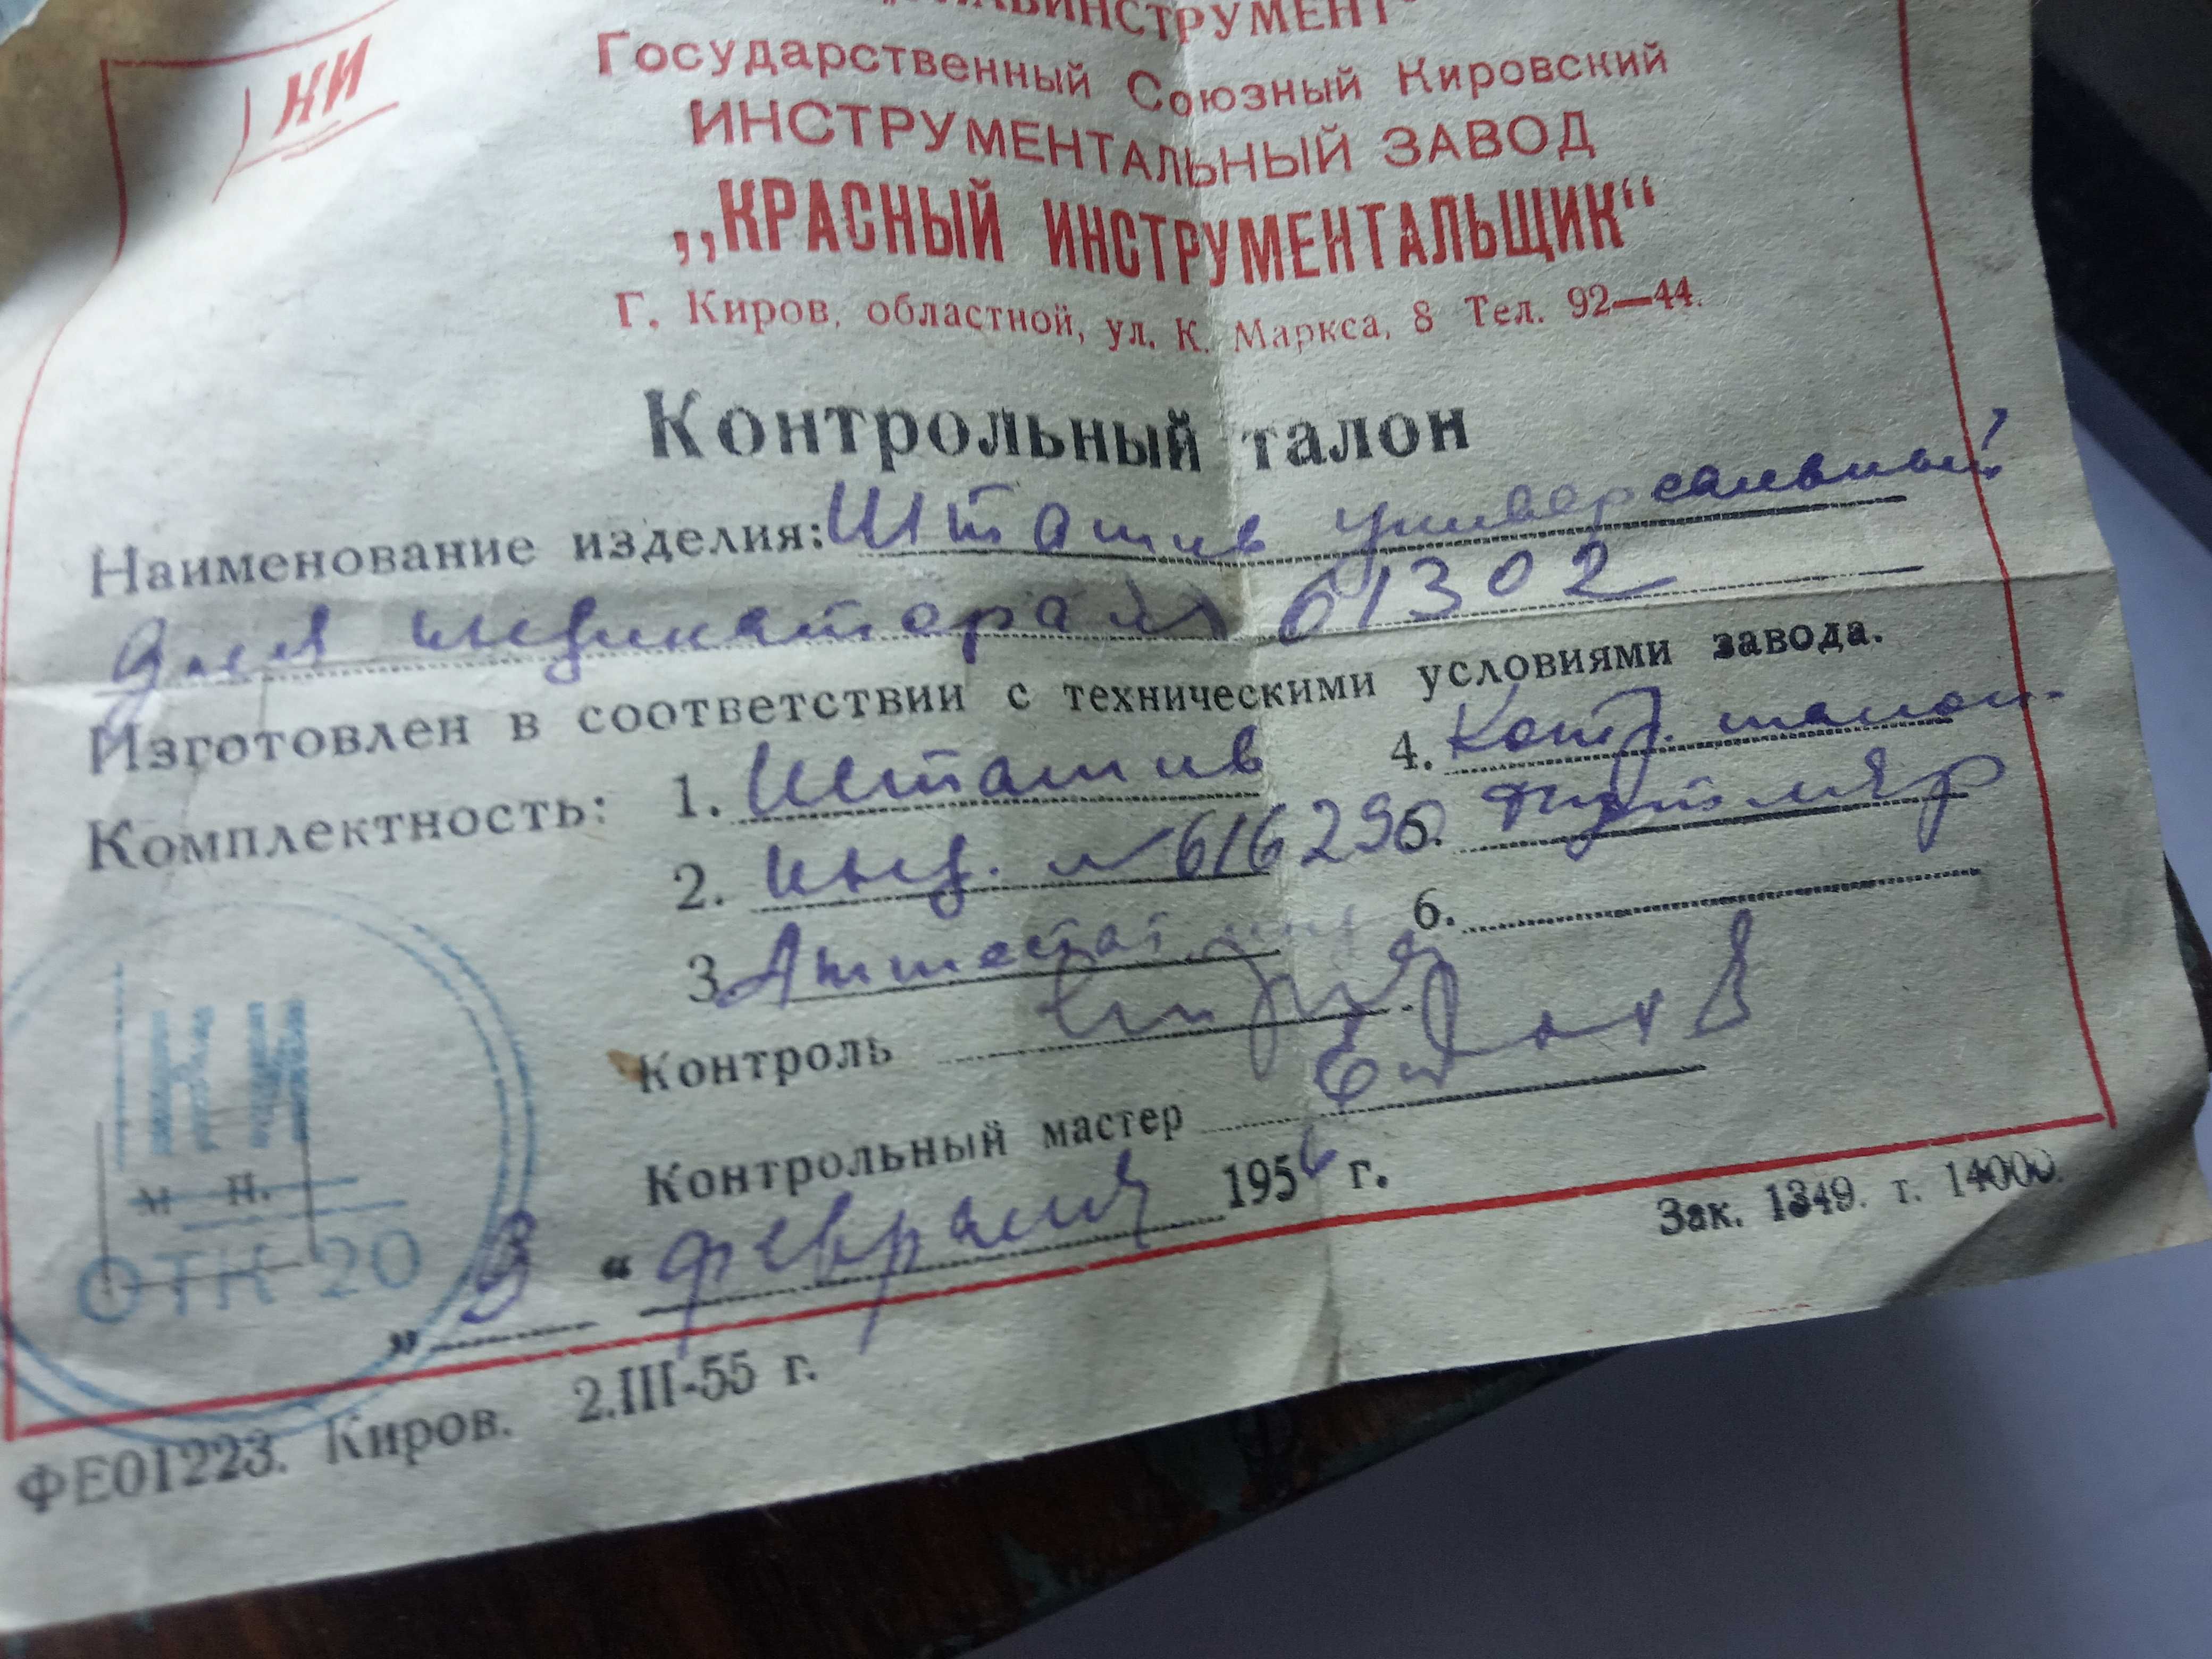 КИ
Государственный Союзный Кировский
ИНСТРУМЕНТАЛЬНЫЙ ЗАВОД
„КРАСНЫЙ ИНСТРУМЕНТАЛЬЩИК“
Г. Киров, областной, ул. К. Маркса, 8 Тел. 92—44.
Контрольный талон
Наименование изделия: Штатив универсальный
для индикатора № 61302
Изготовлен в соответствии с техническими условиями завода.
Комплектность: 1. Штатив 4. Контр. талон.
2. инд. № 616290 5. футляр
3. Аттестат 6.
Контроль
Контрольный мастер
„ 3 “ февраля 1956 г.
КИ
м п.
ОТК 20
Зак. 1349. т. 14000.
ФЕ01223. Киров. 2.III-55 г.